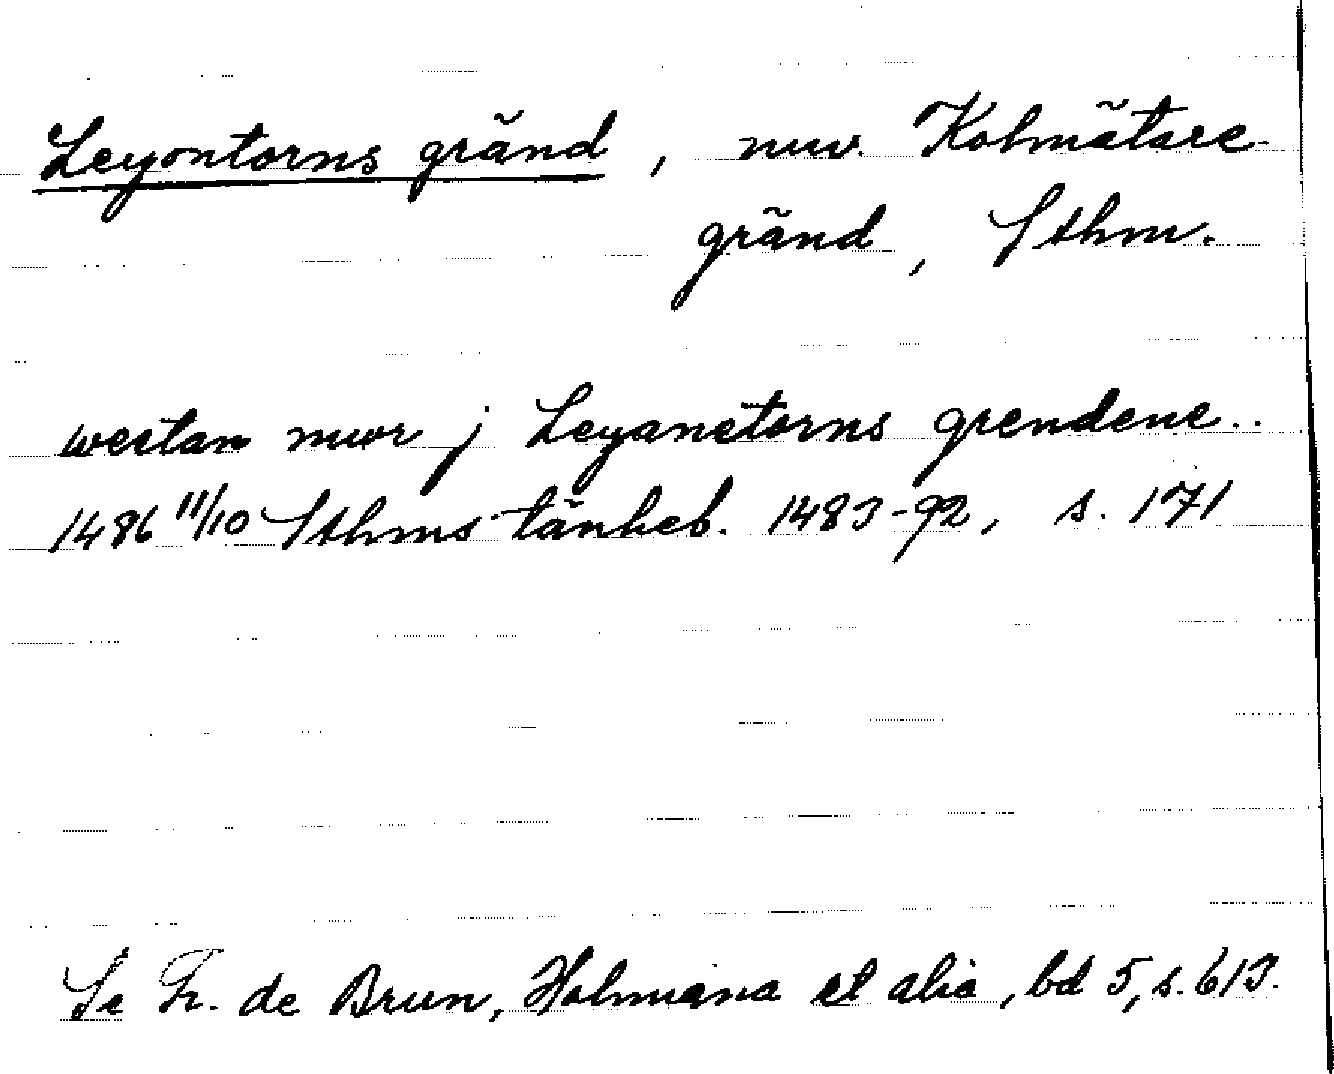 Leyontorns gränd, nuv. Kolmätare-
gränd, Sthm.
westan mwr j Leyonetorns grendene..
1486 11/10 Sthms tänkeb. 1483-92, s. 171
Se Fr. de Brun, Holmiana et alia, bd 5, s. 613.